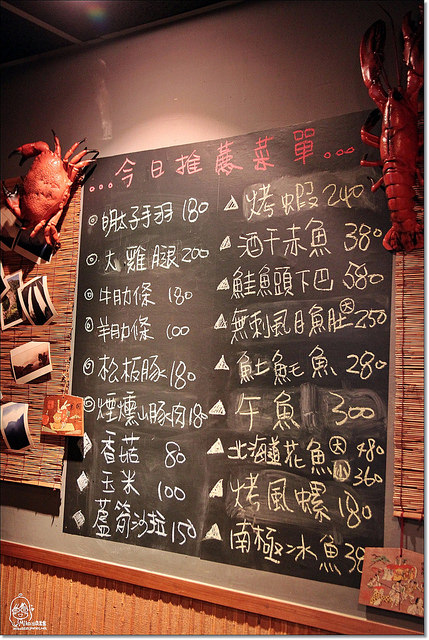 ...今日推薦菜單...
明太子手羽 180
大雞腿 200
牛肋條 180
羊肋條 100
松板豚 180
煙燻山豚肉 18
香菇 80
玉米 100
蘆筍沙拉 150
烤蝦 240
酒干赤魚 380
鮭魚頭下巴 580
無刺虱目魚肚 大 250
魠魚 280
午魚 300
北海道花魚 大 480
小 360
烤風螺 180
南極冰魚 38